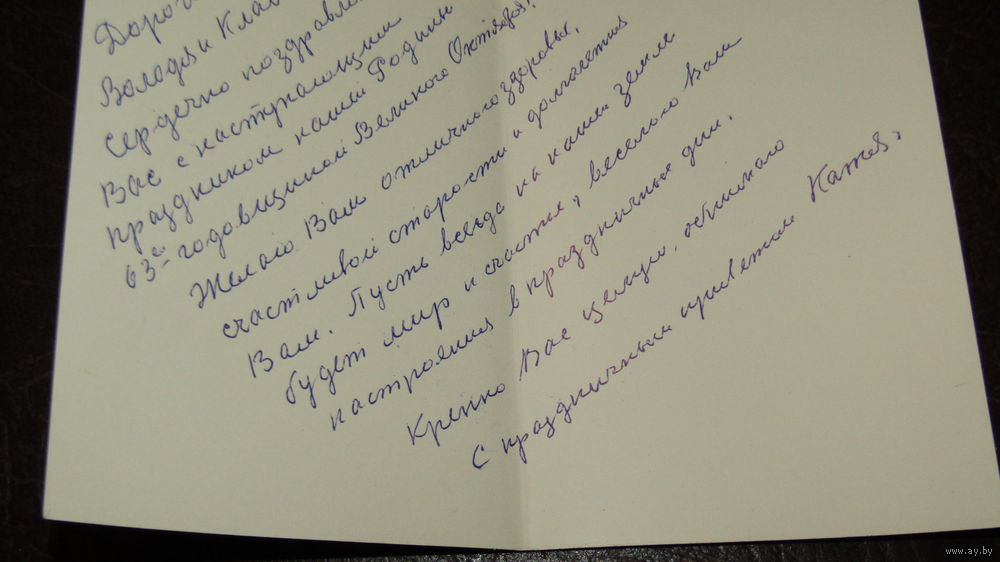 Дорог
Володя и Клав
Сердечно поздравля
Вас с наступающим
праздником нашей Родины
63ей годовщиной Великого Октября!
Желаю Вам отличного здоровья,
счастливой старости и долголетия
Вам. Пусть всегда на нашей земле
будет мир и счастья, веселого Вам
настроения в праздничные дни.
Крепко Вас целую, обнимаю
С праздничным приветом Катя.
www.ay.by